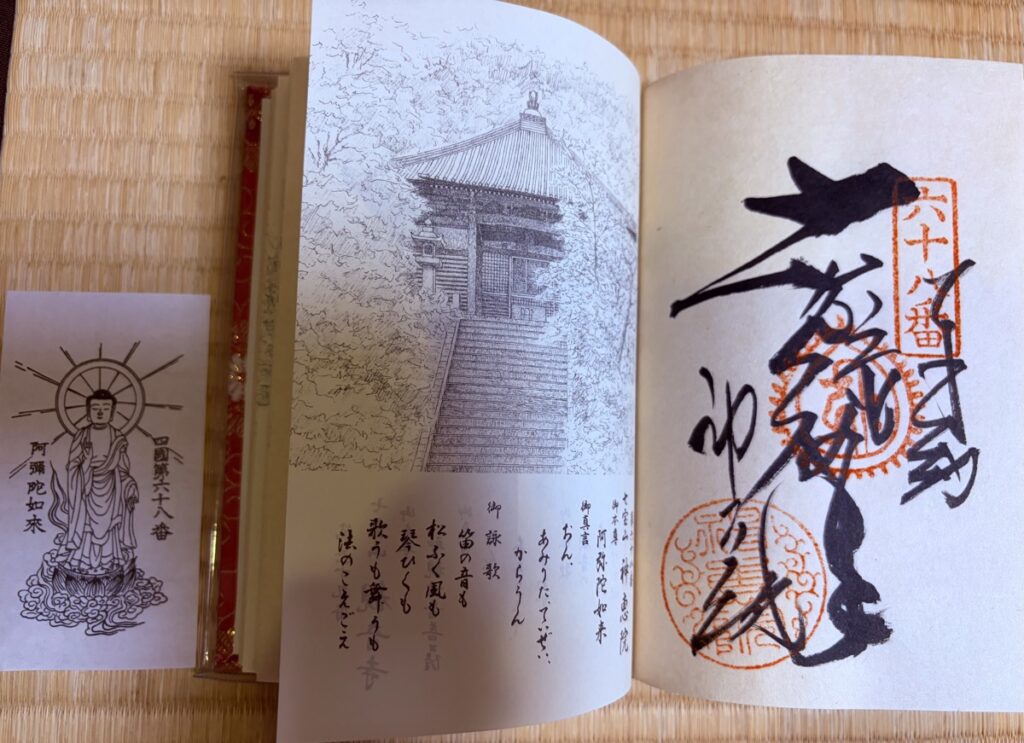 四國第六十八番
阿彌陀如來
七宝山 神恵院
御本尊
阿弥陀如来
御真言
おん、
あみりた、ていぜい、
からうん
御詠歌
笛の音も
松ふく風も
琴ひくも
歌うも舞うも
法のこえごえ
六十八番
奉納
神恵院